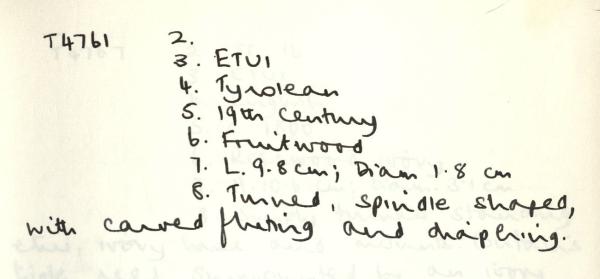 T4761 2.
3. ETUI
4. Tyrolean
5. 19th Century
6. Fruitwood
7. L. 9.8cm; Diam 1.8 cm
8. Turned, spindle shaped,
with carved fluting and